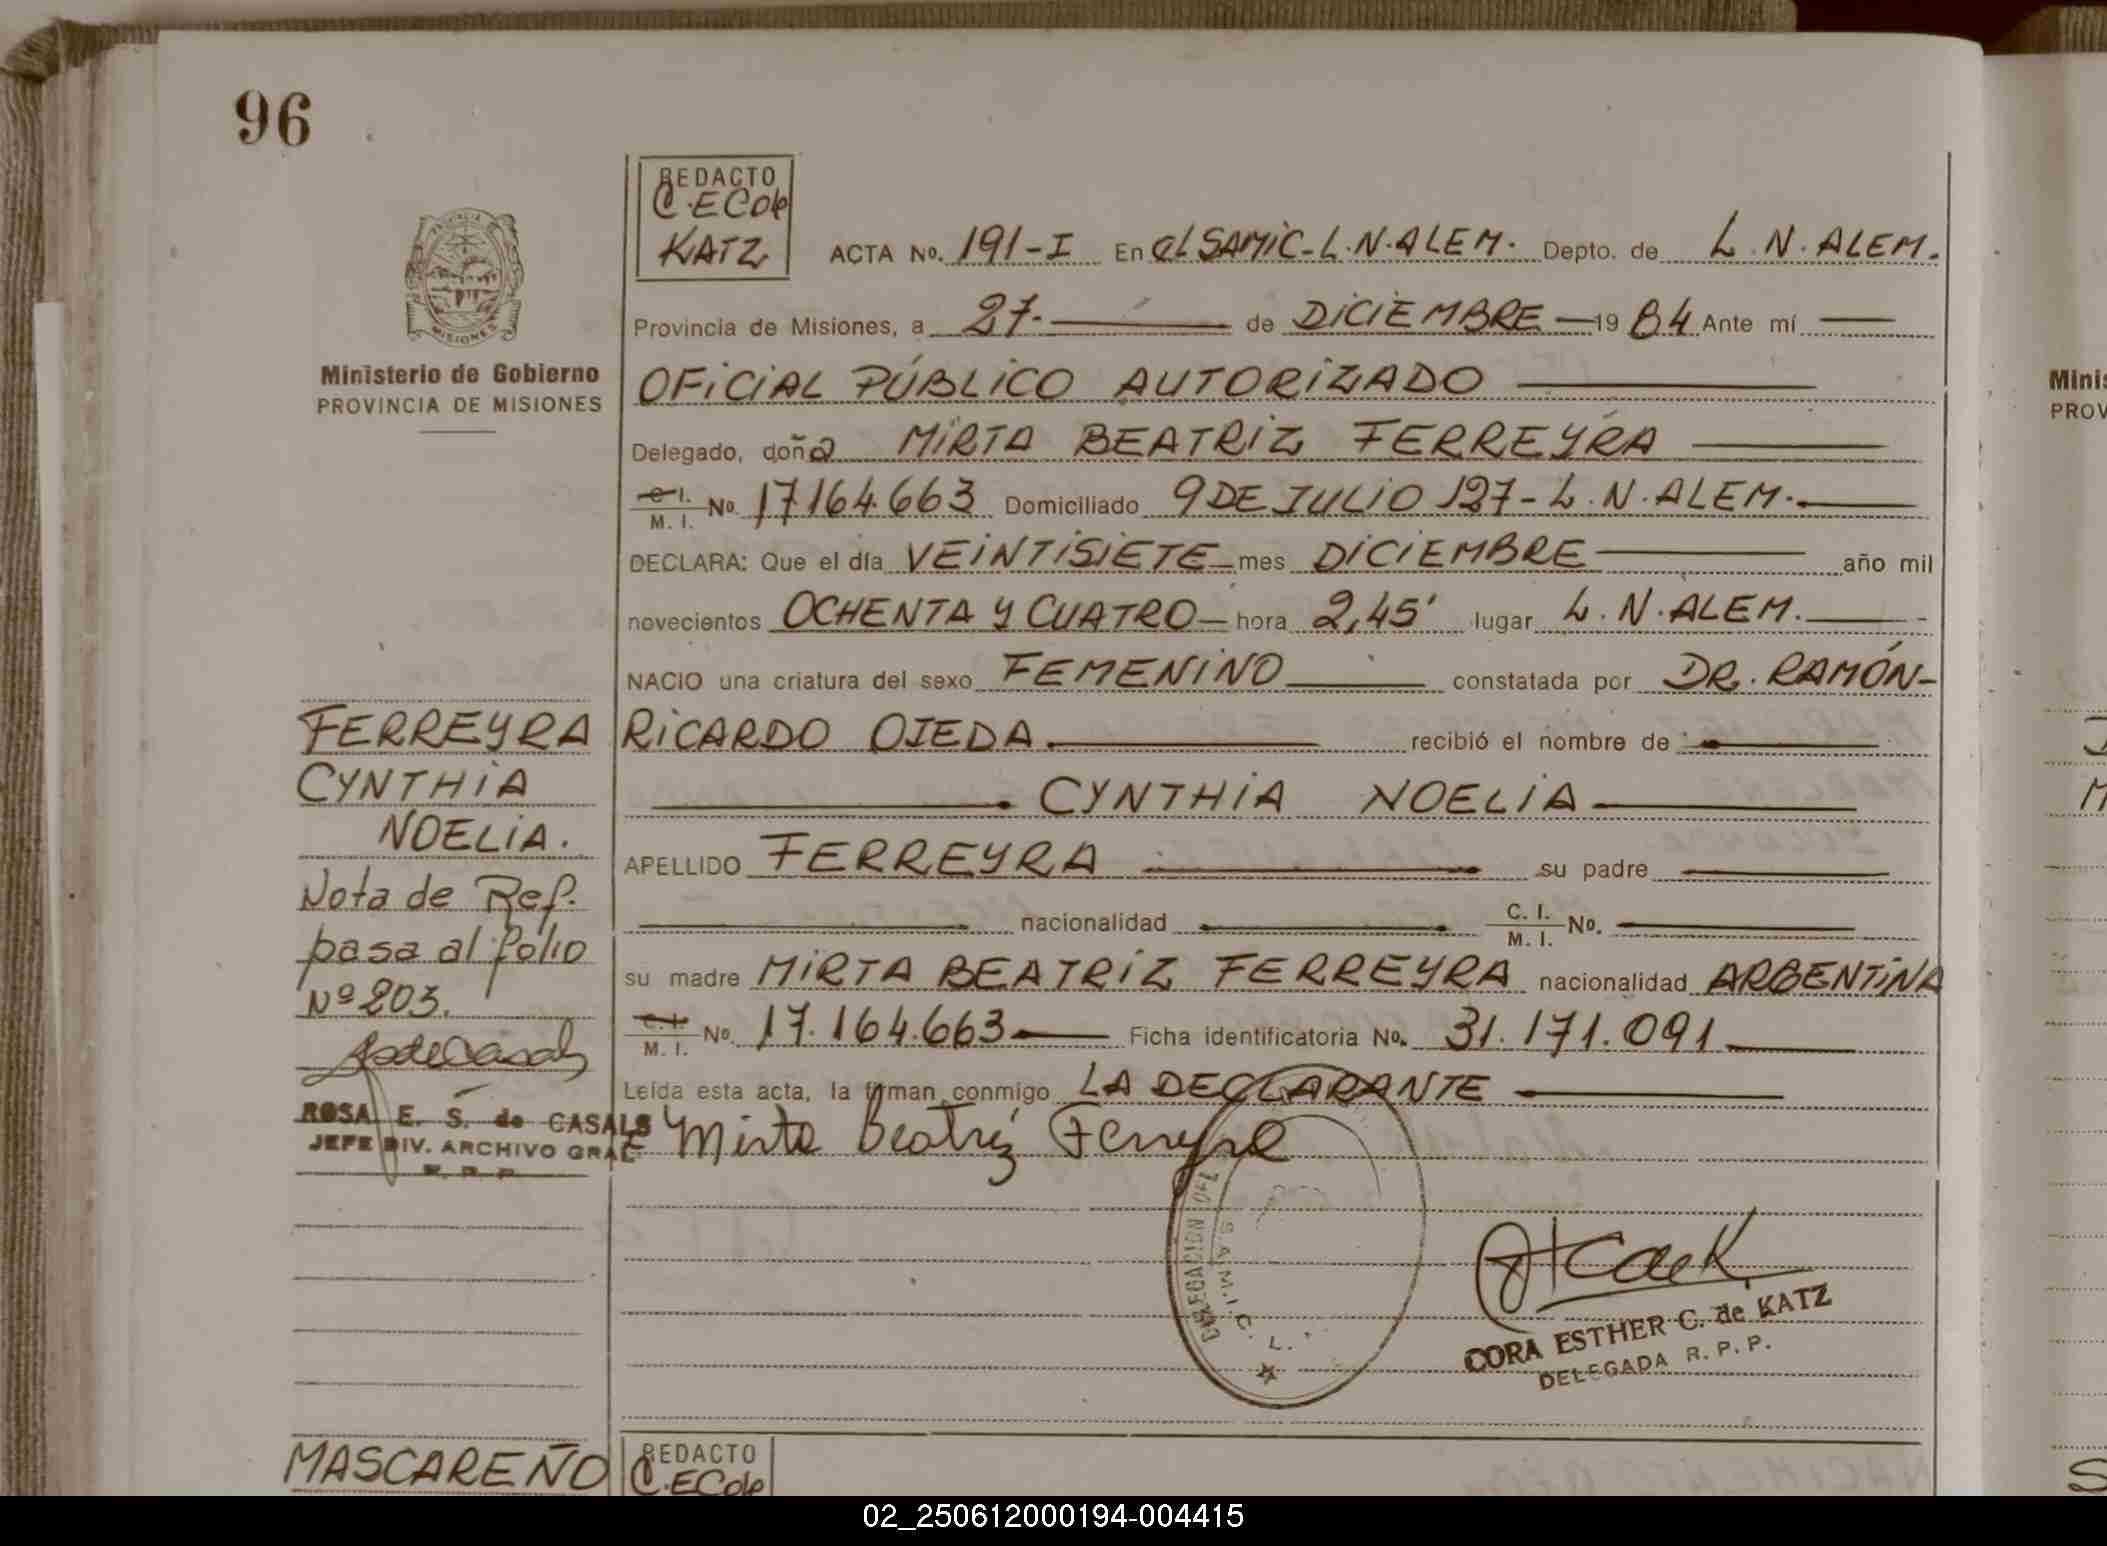 96
REDACTO
C.E.C de
KATZ
PROVINCIA
MISIONES
Ministerio de Gobierno
PROVINCIA DE MISIONES
ACTA No. 191-I En el SAMIC-L.N.ALEM. Depto. de L.N.ALEM.
Provincia de Misiones, a 27. de DICIEMBRE 1984 Ante mí
OFICIAL PÚBLICO AUTORIZADO
Delegado, doña MIRTA BEATRIZ FERREYRA
C.I. M.I. No. 17164.663 Domiciliado 9 DE JULIO 127-L.N.ALEM.
DECLARA: Que el día VEINTISIETE mes DICIEMBRE año mil
novecientos OCHENTA Y CUATRO hora 2,45' lugar L.N.ALEM.
NACIO una criatura del sexo FEMENINO constatada por DR. RAMÓN-
RICARDO OJEDA. recibió el nombre de
CYNTHIA NOELIA
APELLIDO FERREYRA su padre
nacionalidad C.I. M.I. No.
su madre MIRTA BEATRIZ FERREYRA nacionalidad ARGENTINA
C.I. M.I. No. 17.164.663 Ficha identificatoria No. 31.171.091
Leída esta acta, la firman conmigo LA DECLARANTE
Mirta Beatriz Ferreyra
FERREYRA
CYNTHIA
NOELIA.
Nota de Ref.
pasa al folio
Nº 203.
ROSA E. S. de CASALS
JEFE DIV. ARCHIVO GRAL
R. P. P.
DELEGACION
S.A.M.I.C. L.
CORA ESTHER C. de KATZ
DELEGADA R. P. P.
MASCAREÑO
REDACTO
C.E.C de
Minis
PROV
02_250612000194-004415